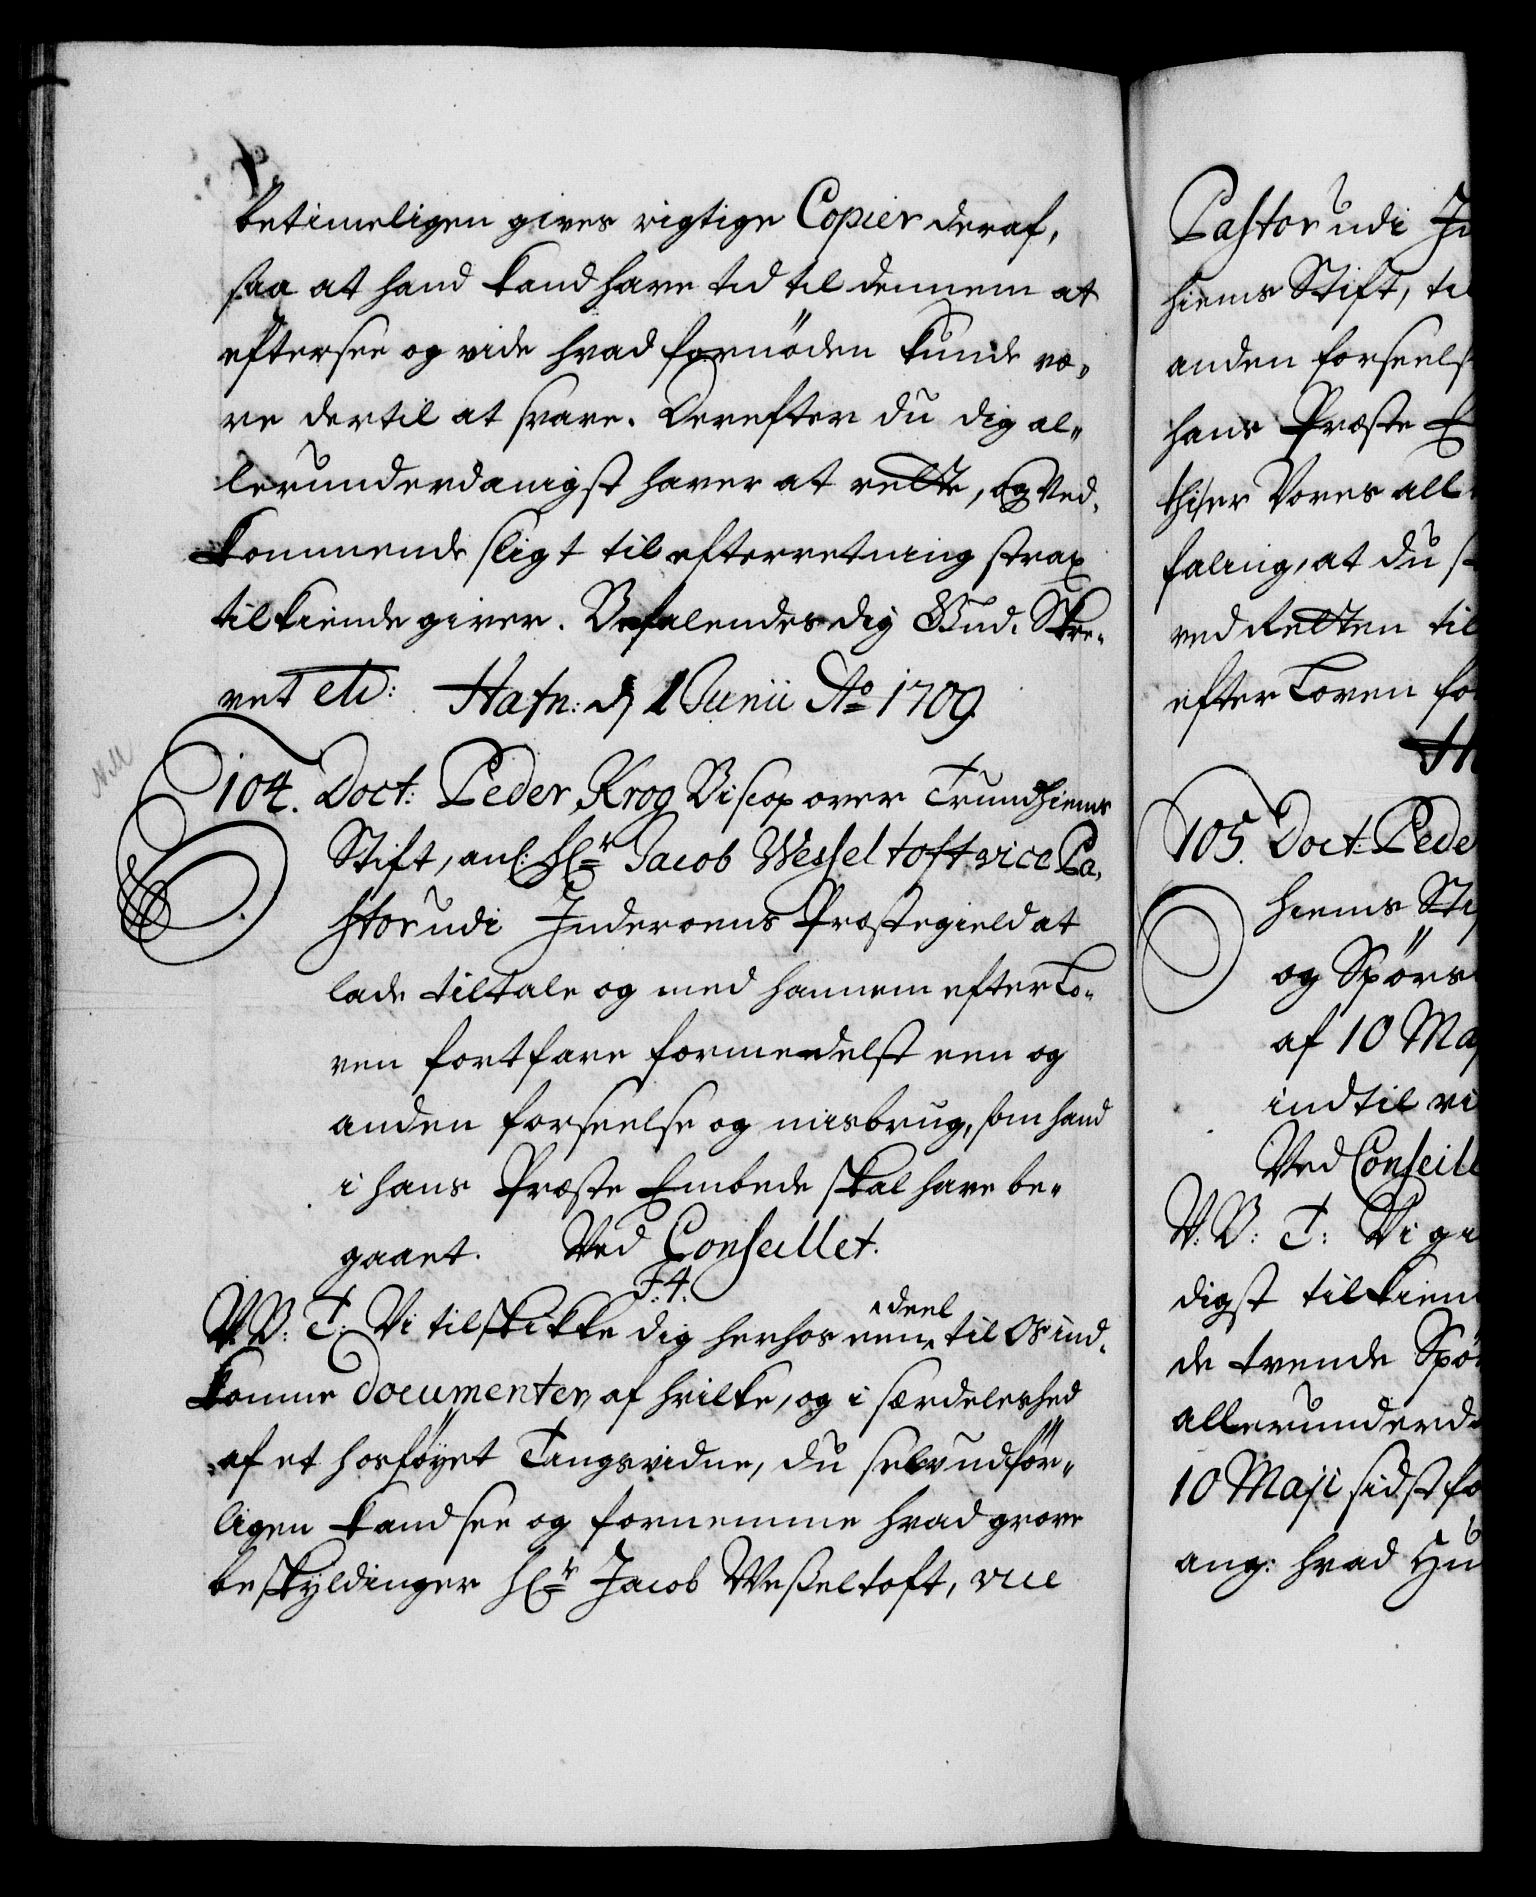 betimeligen gives rigtige Copier deraf,
saa at hand kand have tid til dennem at
eftersee og vide hvad fornöden kunde væ-
re dertil at svare. Derefter du dig al-
lerunderdanigst haver at rette, og Ved-
kommende sligt til efterretning strax
tilkiende giver. Befalendes dig Gud. Skre-
vet etc: Hafn: d 1 Junii Ao 1709
N.M
104. Doct: Peder Krog Biscop over Trundhiems
Stift, anl: Hr Jacob Wessel toft vice Pa-
stor udi Inderoens Præstegield at
lade tiltale og med hannem efter Lo-
ven fortfare formedelst een og
anden forseelse og misbrug, som hand
i hans Præste Embede skal have be-
gaaet. Ved Conseillet.
F. 4.
V. B: T: Vi tilskikke dig herhos een deel til Os ind-
komne documenter, af hvilke, og i særdeleshed
af et hosföyet Tingsvidne, du selv udför-
ligen kand see og fornemme hvad grove
beskyldinger Hr Jacob Weßeltoft, vice
Pastor udi In
hiems Stift, til
anden forseels
hans Præste E
this er Vores all
faling, at du s
ved Retten til
efter Loven fo
H
105. Doct: Pede
hiems Sti
og Spörs
af 10 Maj
indtil vi
Ved Conseill
V. B: T: Vi gi
digst tilkien
de tvende Spö
allerunderd
10 Maji sidst fo
ang: hvad Hu